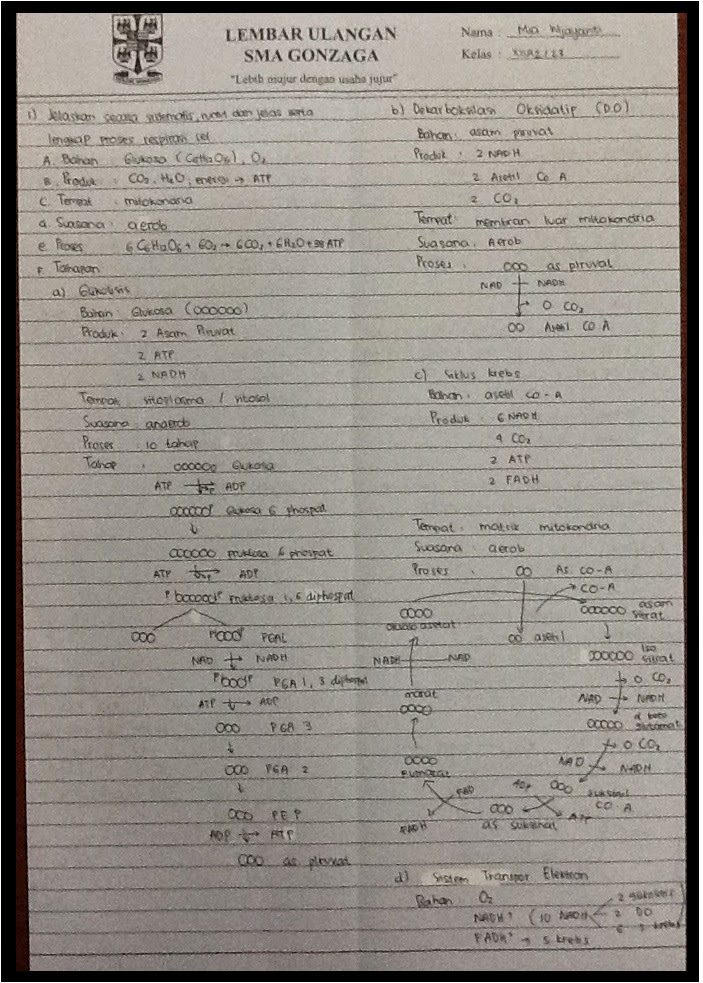 LEMBAR ULANGAN
SMA GONZAGA
"Lebih majur dengan usaha jujur"
Nama : Mia Wijayanti
Kelas :
1) Jelaskan secara sistematis, runut dan jelas serta
lengkap proses respirasi sel
A. Bahan : Glukosa (C6H12O6), O2
B. Produk : CO2, H2O, energi → ATP
C. Tempat : mitokondria
d. Suasana : aerob
e. Proses 6 C6H12O6 + 6O2 → 6CO2 + 6H2O + 38 ATP
F. Tahapan
a) Glikolisis
Bahan : Glukosa (000000)
Produk : 2 Asam Piruvat
2 ATP
2 NADH
Tempat : sitoplasma / sitosol
Suasana : anaerob
Proses : 10 tahap
Tahap : 000000 Glukosa
ATP → ADP
000000P Glukosa 6 phospat
↓
000000 Fruktosa 6 phospat
ATP → ADP
P 000000P Fruktosa 1,6 diphospat
000 P000P PGAL
NAD → NADH
P000P PGA 1, 3 diphospat
ATP → ADP
000 PGA 3
↓
000 PGA 2
↓
000 PEP
ADP → ATP
000 as piruvat
b) Dekarboksilasi Oksidatip (DO)
Bahan : asam piruvat
Produk : 2 NADH
2 Asetil Co A
2 CO2
Tempat : membran luar mitokondria
Suasana : Aerob
Proses : 000 as piruvat
NAD → NADH
→ 0 CO2
00 Asetil CO A
c) Siklus krebs
Bahan : asetil Co-A
Produk : 6 NADH
4 CO2
2 ATP
2 FADH
Tempat : matrik mitokondria
Suasana aerob
Proses : 00 As. CO-A
→ CO-A
0000 000000 asam
oksalo asetat sitrat
00 asetil
000000 Iso
sitrat
NADH NAD
→ 0 CO2
malat
NAD → NADH
0000
00000 α keto
glutamat
→ 0 CO2
0000
fumarat
NAD → NADH
FAD ADP 000 suksinil
CO-A
000 ATP
FADH as suksinat
d) Sistem Transpor Elektron
Bahan O2
NADH+ (10 NADH 2 glikolisis
2 DO
6 krebs
FADH+ → s krebs